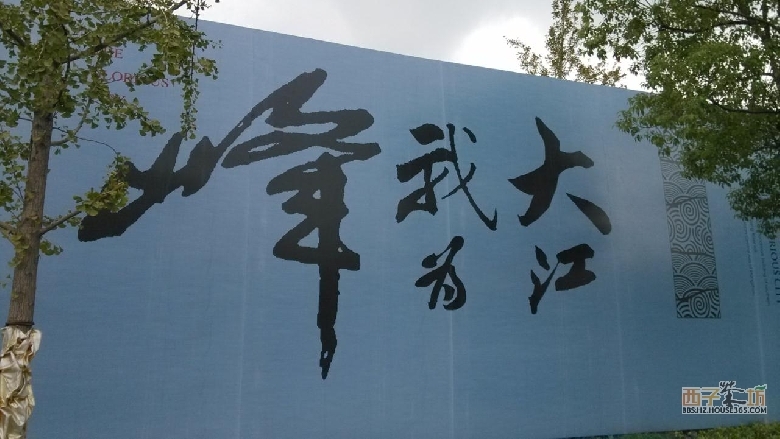 大江
我为
峰
西子茶坊
BBS.HZ.HOUSE365.COM